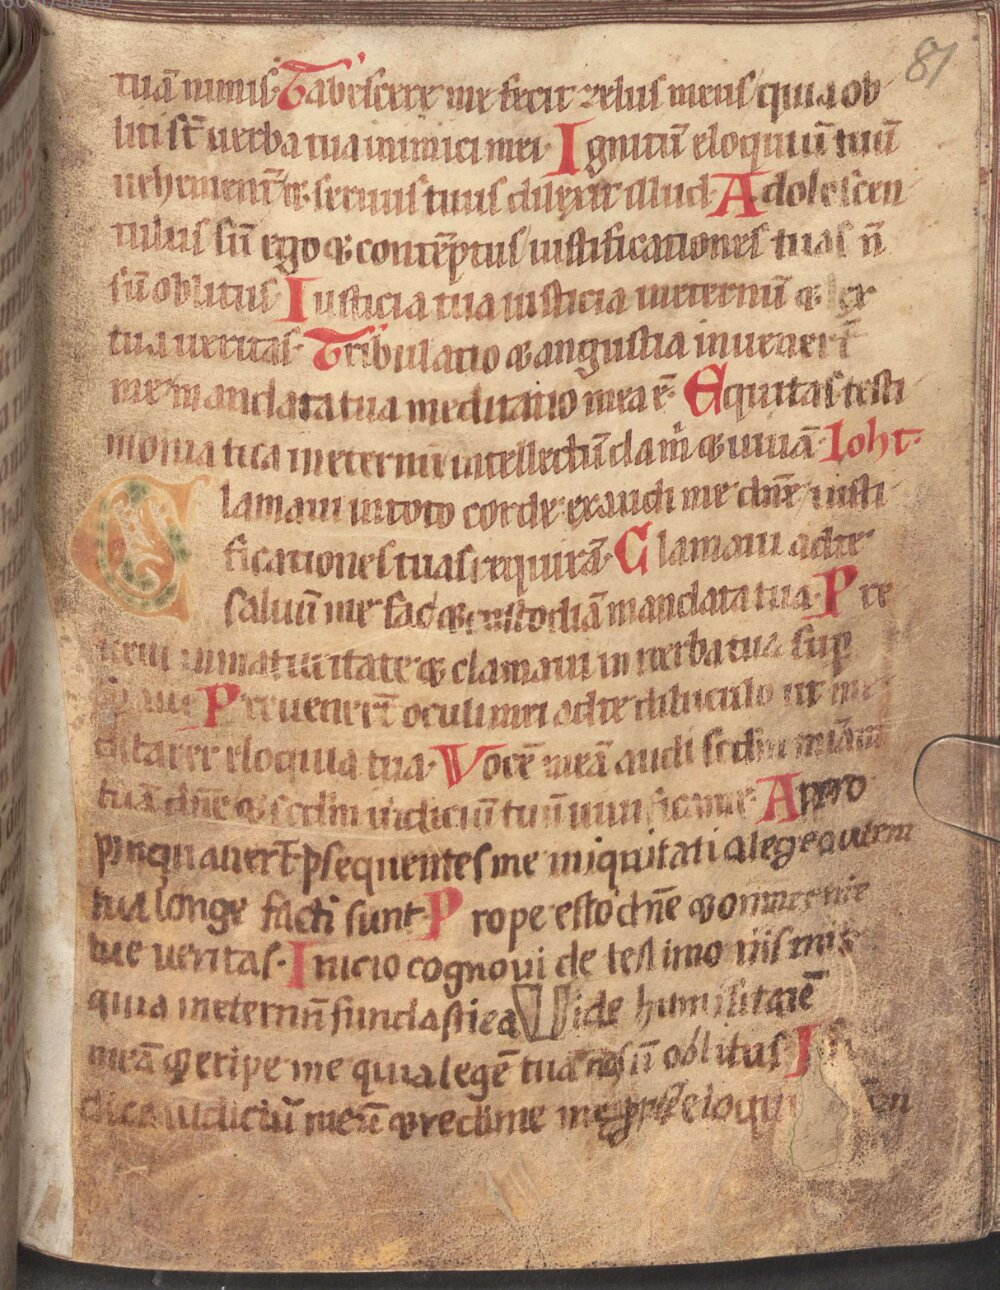 81
tuā nimis· Tabescere me fecit zelus meus quia ob
liti st̄ uerba tua inimici mei· Ignitū eloquiū tuū
uehement̄ & seruus tuus dilexit illud· Adolescen
tulus sū ego & contēptus iustificationes tuas n̄
sū oblitus· Iusticia tua iusticia ineternū & lex
tua ueritas· Tribulatio & angustia inuenert̄
me mandata tua meditatio mea ē· Equitas testi
monia tua ineternū intellectū da m̄ & uiuā· Ioht·
Clamaui in toto corde exaudi me dn̄e iusti
ficationes tuas requirā· Clamaui ad te
saluū me fac & custodiā mandata tua· Pre
ueni inmaturitate & clamaui in uerba tua sup
Preuenert̄ oculi mei ad te diluculo ut me
ditarer eloquia tua· Vocē meā audi scdm̄ miām
tuā dn̄e & scdm̄ iudiciū tuū uiuifica me· Appro
pinquauert̄ psequentes me iniquitati a lege autem
tua longe facti sunt· Prope esto dn̄e & omnes uie
tue ueritas· Inicio cognoui de testimoniis tuis
quia ineternū fundasti ea Vide humilitatē
meā & eripe me quia legē tuā nō sū oblitus I
dica iudiciū meū & redime me eloqui